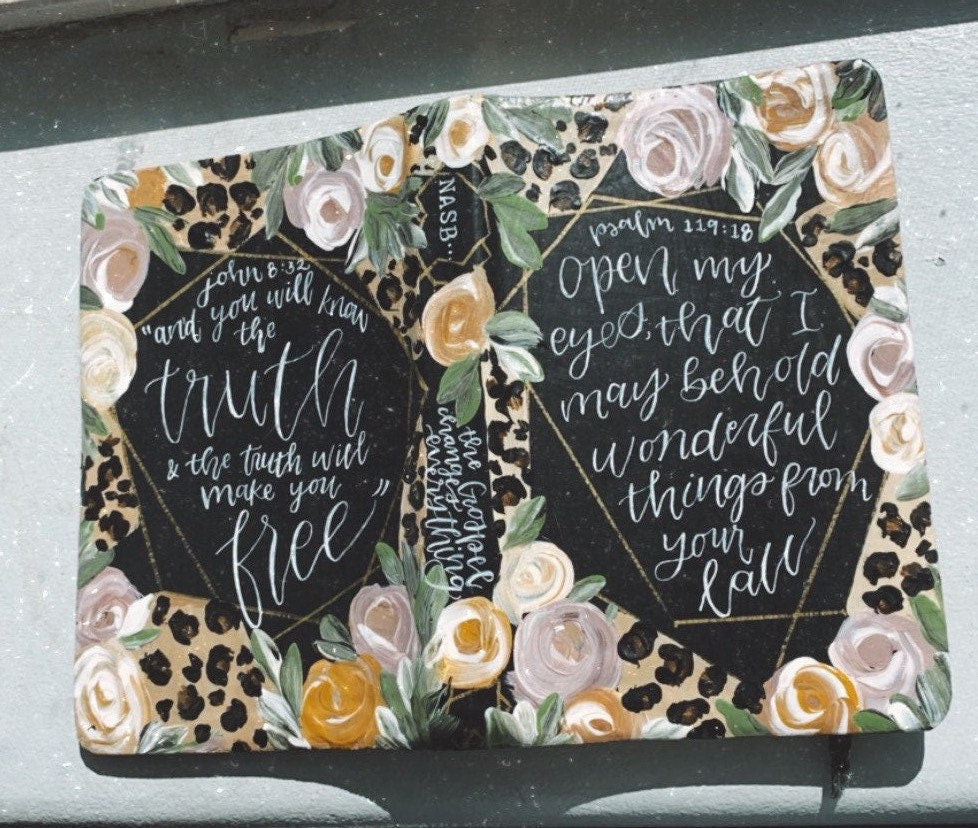 john 8:32
"and you will know
the
truth
& the truth will
make you
free"
NASB...
the Gospel
changes
everything
psalm 119:18
open my
eyes, that I
may behold
wonderful
things from
your
law